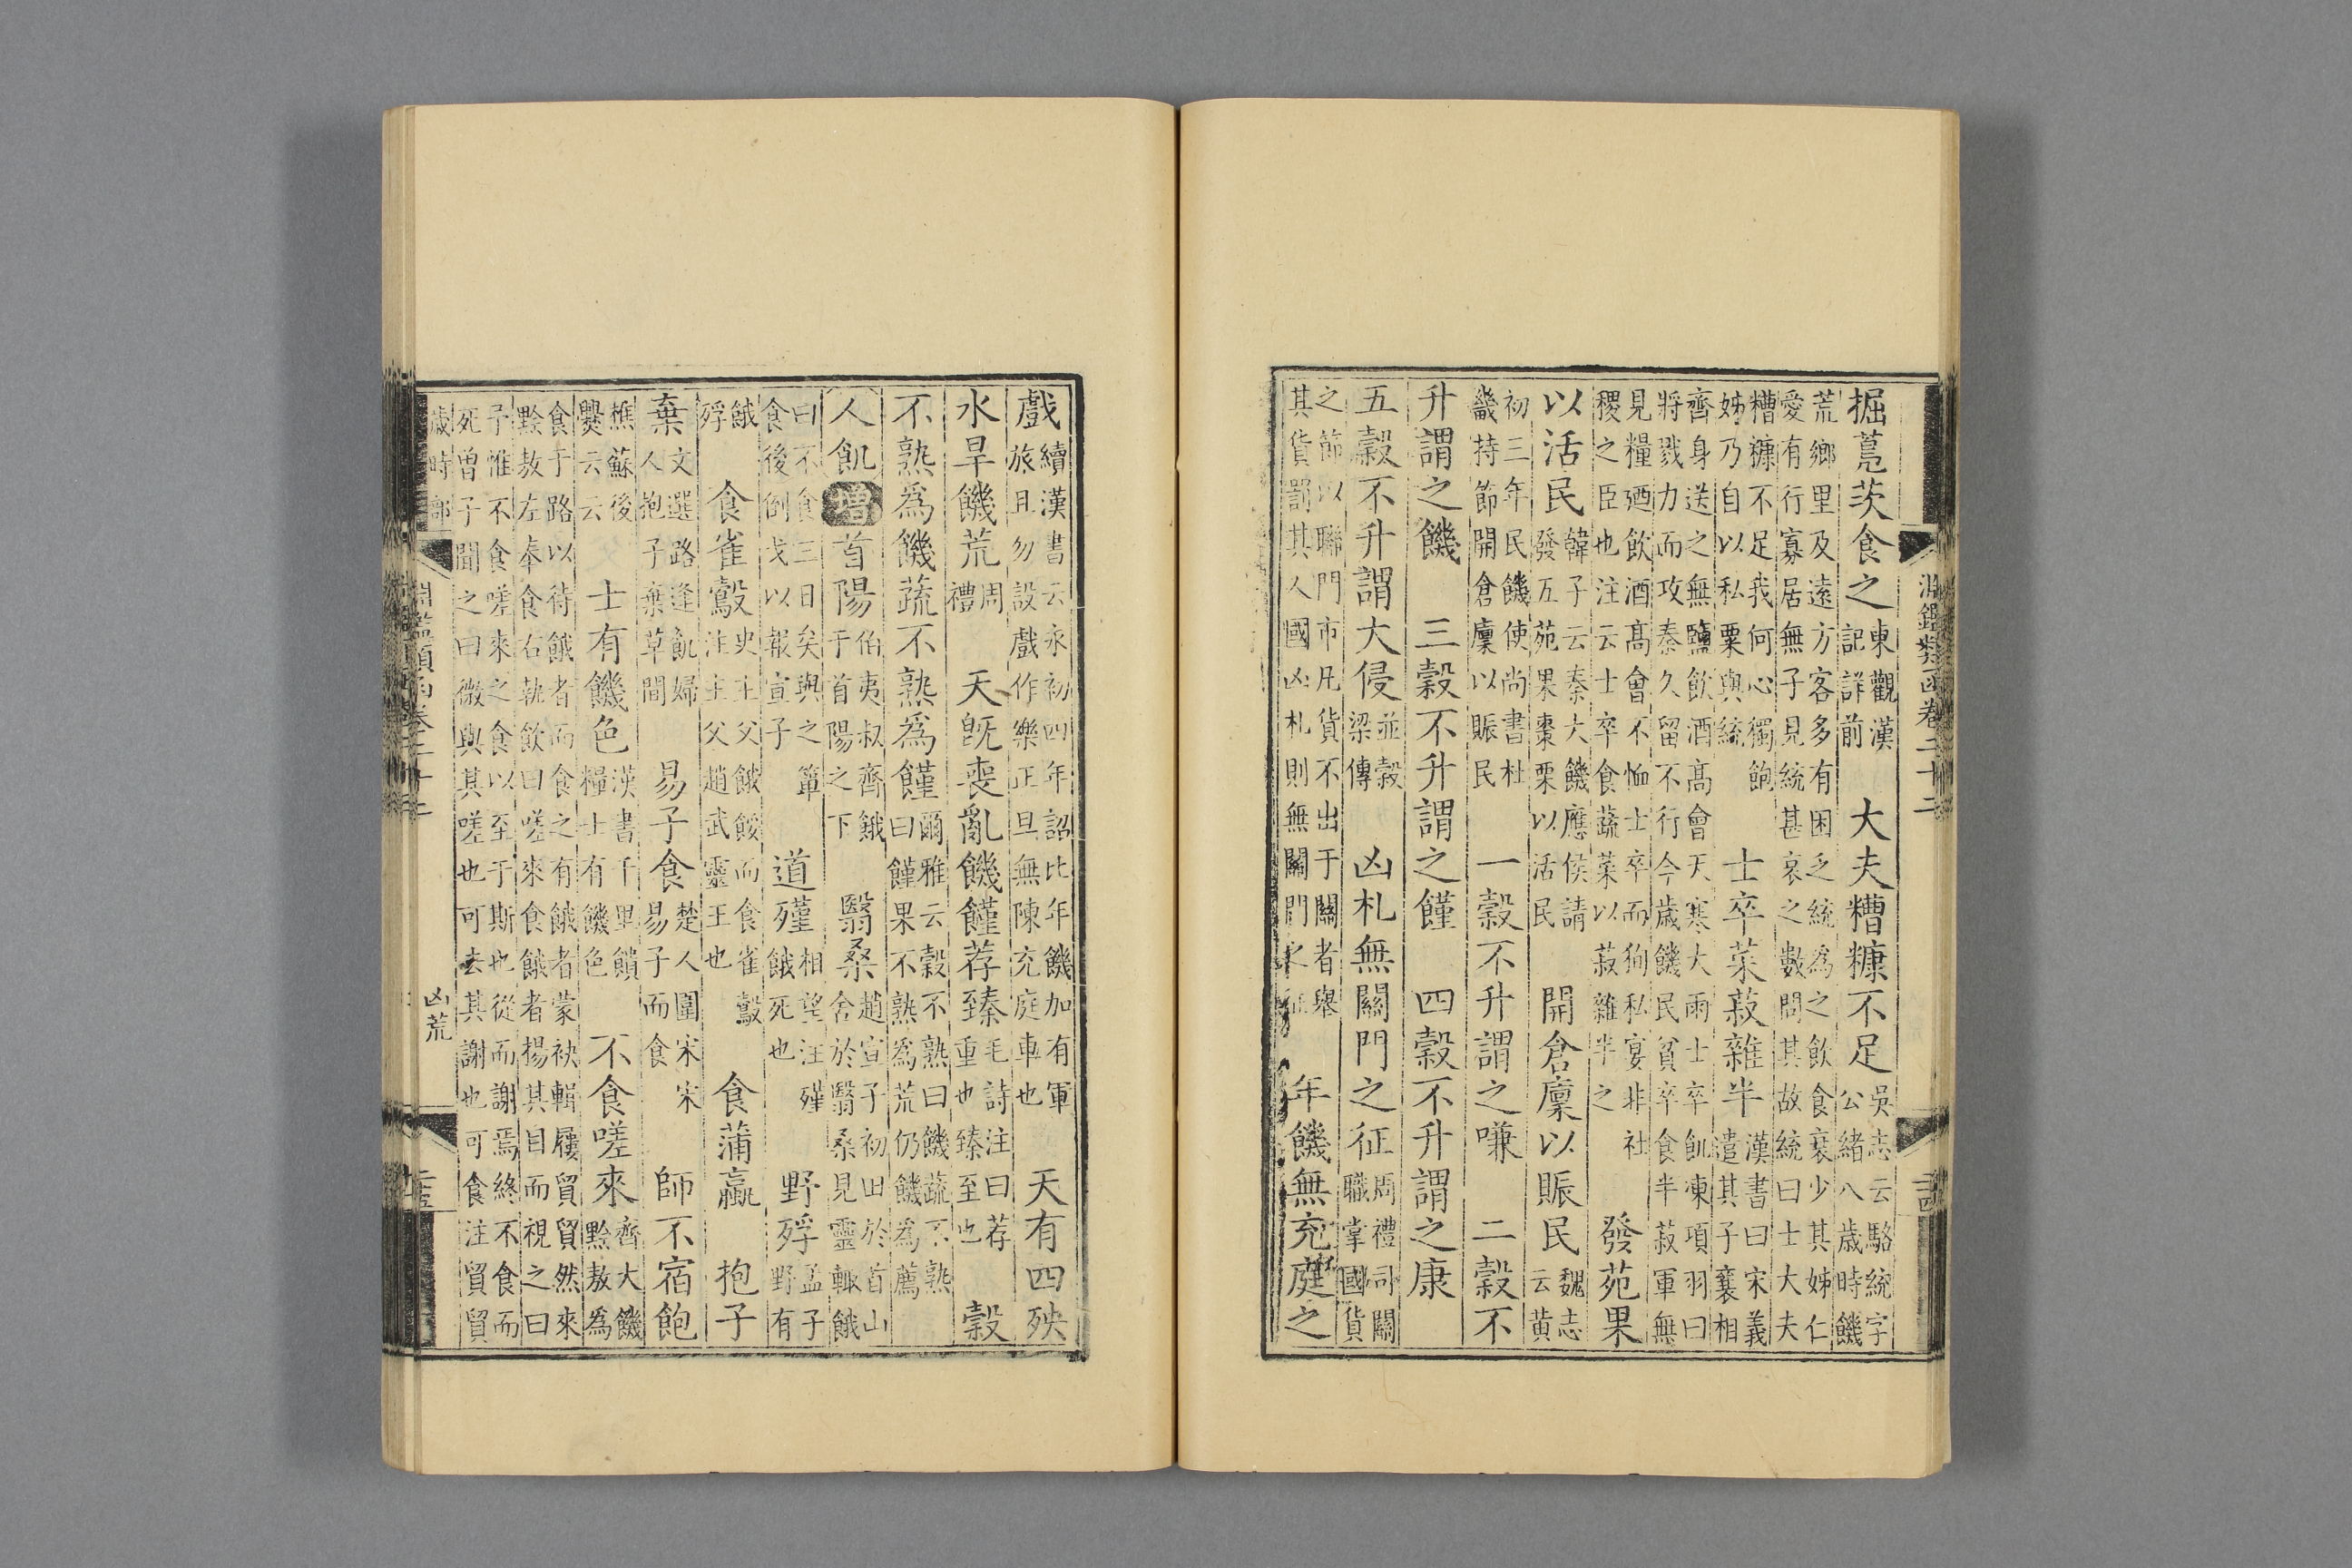 淵鑑類函卷二十二
二十四
掘茨食之東觀漢記詳前　大夫糟糠不足吳志云駱統字公緒八歲時饑
荒鄉里及遠方客多有困乏統爲之飲食衰少其姊仁
愛有行寡居無子見統甚哀之數問其故統曰士大夫
糟糠不足我何心獨飽姊乃自以私粟與統　士卒菜菽雜半漢書曰宋義遣其子襄相
齊身送之無鹽飲酒高會天寒大雨士卒飢凍項羽曰
將戮力而攻秦久留不行今歲饑民貧卒食半菽軍無
見糧廼飲酒高會不恤士卒而狥私宴非社稷之臣也注云士卒食蔬菜以菽雜半之　發苑果
以活民韓子云秦大饑應侯請發五苑果棗栗以活民　開倉廩以賑民魏志云黄
初三年民饑使尚書杜畿持節開倉廩以賑民　一穀不升謂之嗛　二穀不
升謂之饑　三穀不升謂之饉　四穀不升謂之康
五穀不升謂大侵並穀梁傳　凶札無關門之征周禮司關職掌國貨
之節以聯門市凡貨不出于關者舉其貨罰其人國凶札則無關門之征　年饑無充庭之
戲續漢書云永初四年詔比年饑加有軍旅且勿設戲作樂正旦無陳充庭車也　天有四殃
水旱饑荒周禮　天旣喪亂饑饉荐臻毛詩注曰荐重也臻至也　穀
不熟爲饑蔬不熟爲饉爾雅云穀不熟曰饑蔬不熟曰饉果不熟爲荒仍饑爲薦
人飢　增　首陽伯夷叔齊餓于首陽之下　翳桑趙宣子初田於首山舍於翳桑見靈輙餓
曰不食三日矣與之簞食後倒戈以報宣子　道殣相望注殣餓死也　野殍孟子野有
餓殍　食雀鷇史主父餓餒而食雀鷇注主父趙武靈王也　食蒲蠃　抱子
棄文選路逢飢婦人抱子棄草間　易子食楚人圍宋宋易子而食　師不宿飽
樵蘇後爨云云　士有饑色漢書千里饋糧士有饑色　不食嗟來齊大饑黔敖爲
食于路以待餓者而食之有餓者蒙袂輯屨貿貿然來
黔敖左奉食右執飲曰嗟來食餓者揚其目而視之曰
予惟不食嗟來之食以至于斯也從而謝焉終不食而
死曾子聞之曰微與其嗟也可去其謝也可食注貿貿
歲時部
淵鑑類函卷二十二
凶荒
二十五